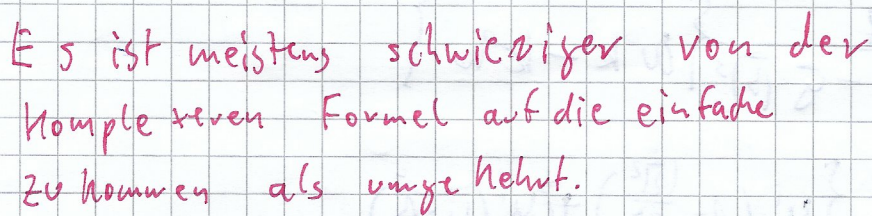 Es ist meistens schwieriger von der
komplexeren Formel auf die einfache
zu kommen als umgekehrt.